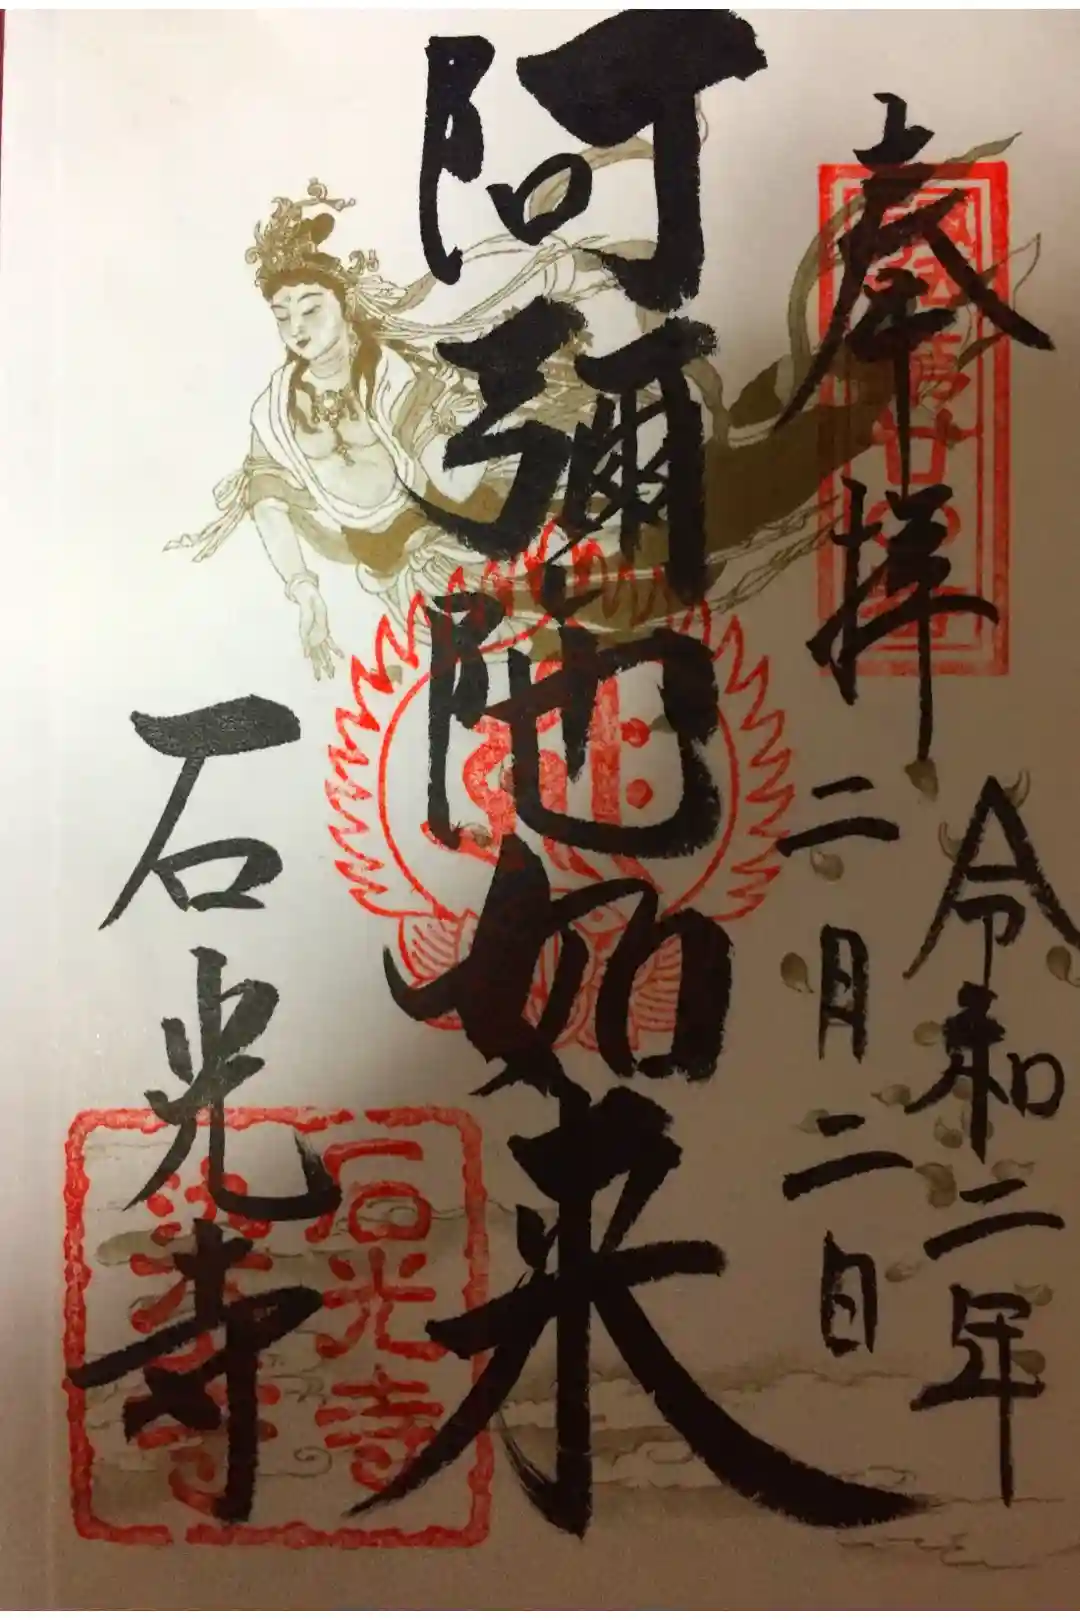 奉拝
令和二年
二月二日
阿彌陀如来
石光寺
石光寺
染寺